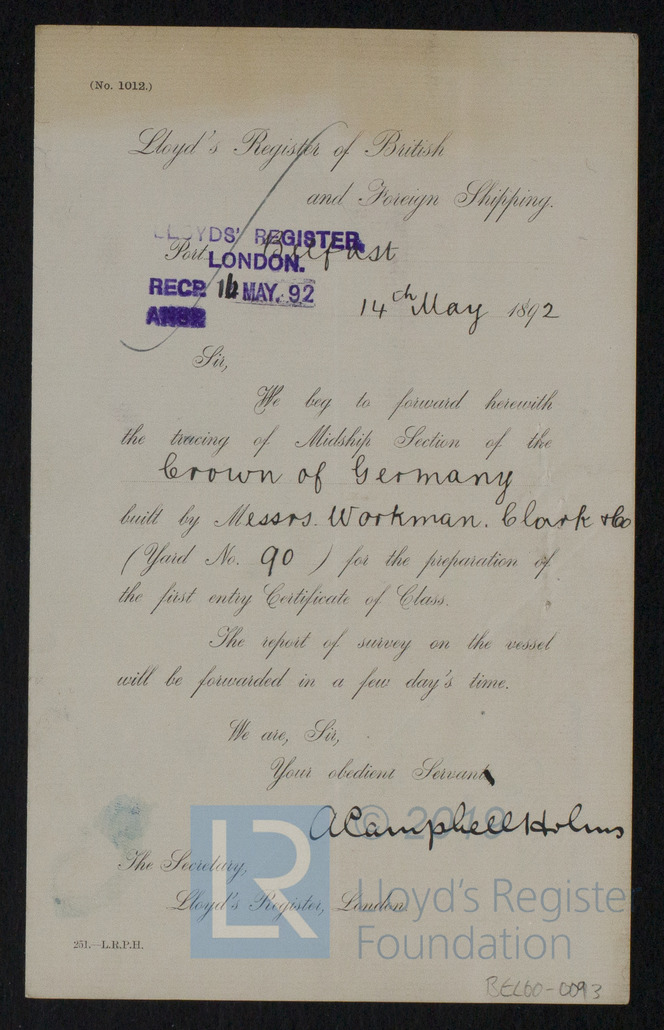 (No. 1012.)
Lloyd's Register of British
and Foreign Shipping.
LLOYDS' REGISTER,
LONDON.
RECD 14 MAY. 92
ANSD
Port Belfast
14th May 1892
Sir,
We beg to forward herewith
the tracing of Midship Section of the
Crown of Germany
built by Messrs. Workman. Clark & Co
(Yard No. 90 ) for the preparation of
the first entry Certificate of Class.
The report of survey on the vessel
will be forwarded in a few day's time.
We are, Sir,
Your obedient Servant
ACampbellHolms
The Secretary,
Lloyd's Register, London
251.—L.R.P.H.
LR
© 2019
Lloyd's Register
Foundation
BEL60-0093